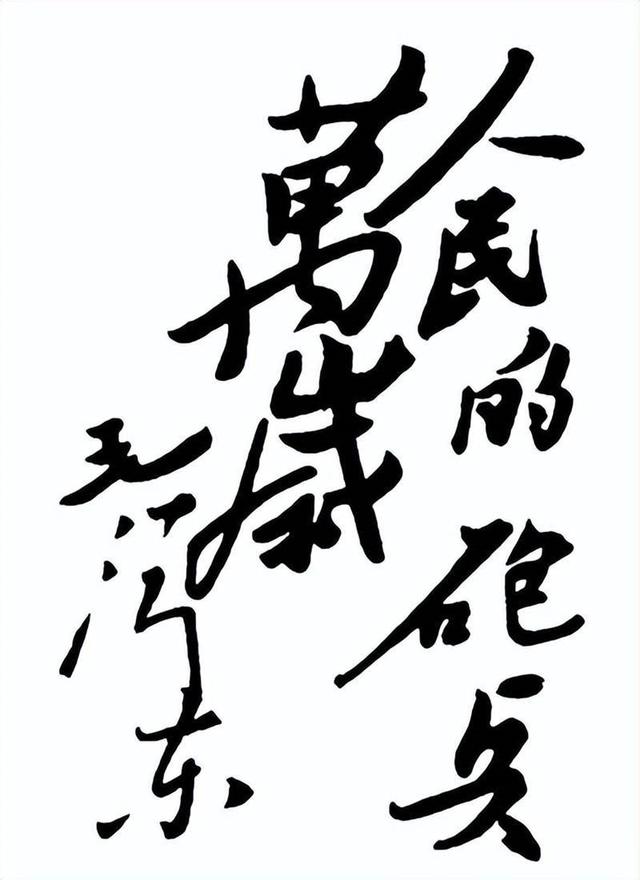 人民的砲兵
萬歲
毛泽东